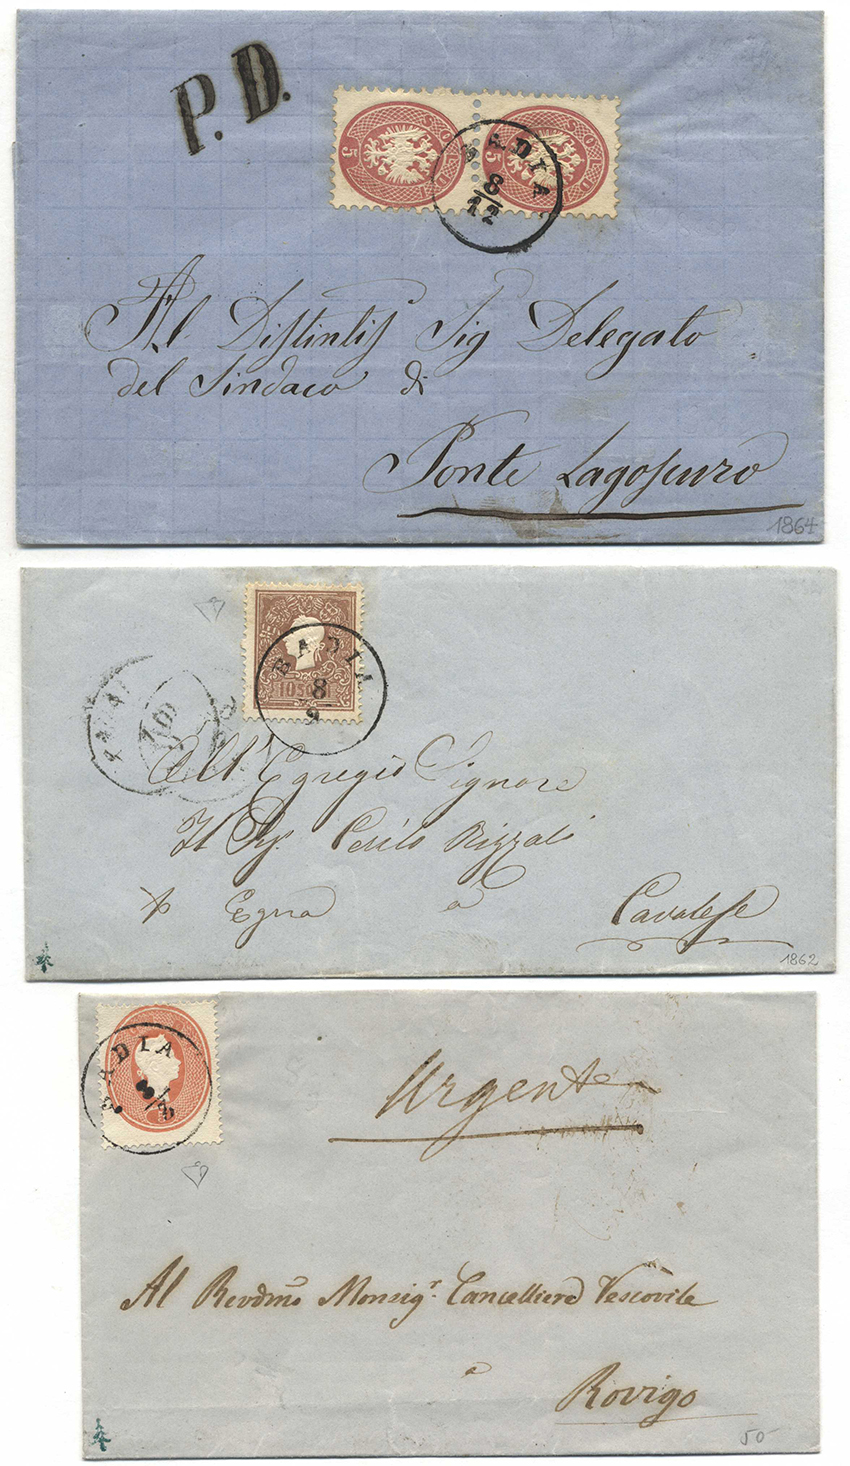 P. D.
5 SOLDI 5 SOLDI
BADIA
8
12
Al Distintiss Sig Delegato
del Sindaco di
Ponte Lagoscuro
1864
10 SOLDI
BADIA
8
9
All' Egregio Signore
Il Sig. Perito Rizzoli
x Egna a Cavalese
1862
BADIA
Urgente
Al Revdmo Monsigr. Cancelliere Vescovile
a
Rovigo
50